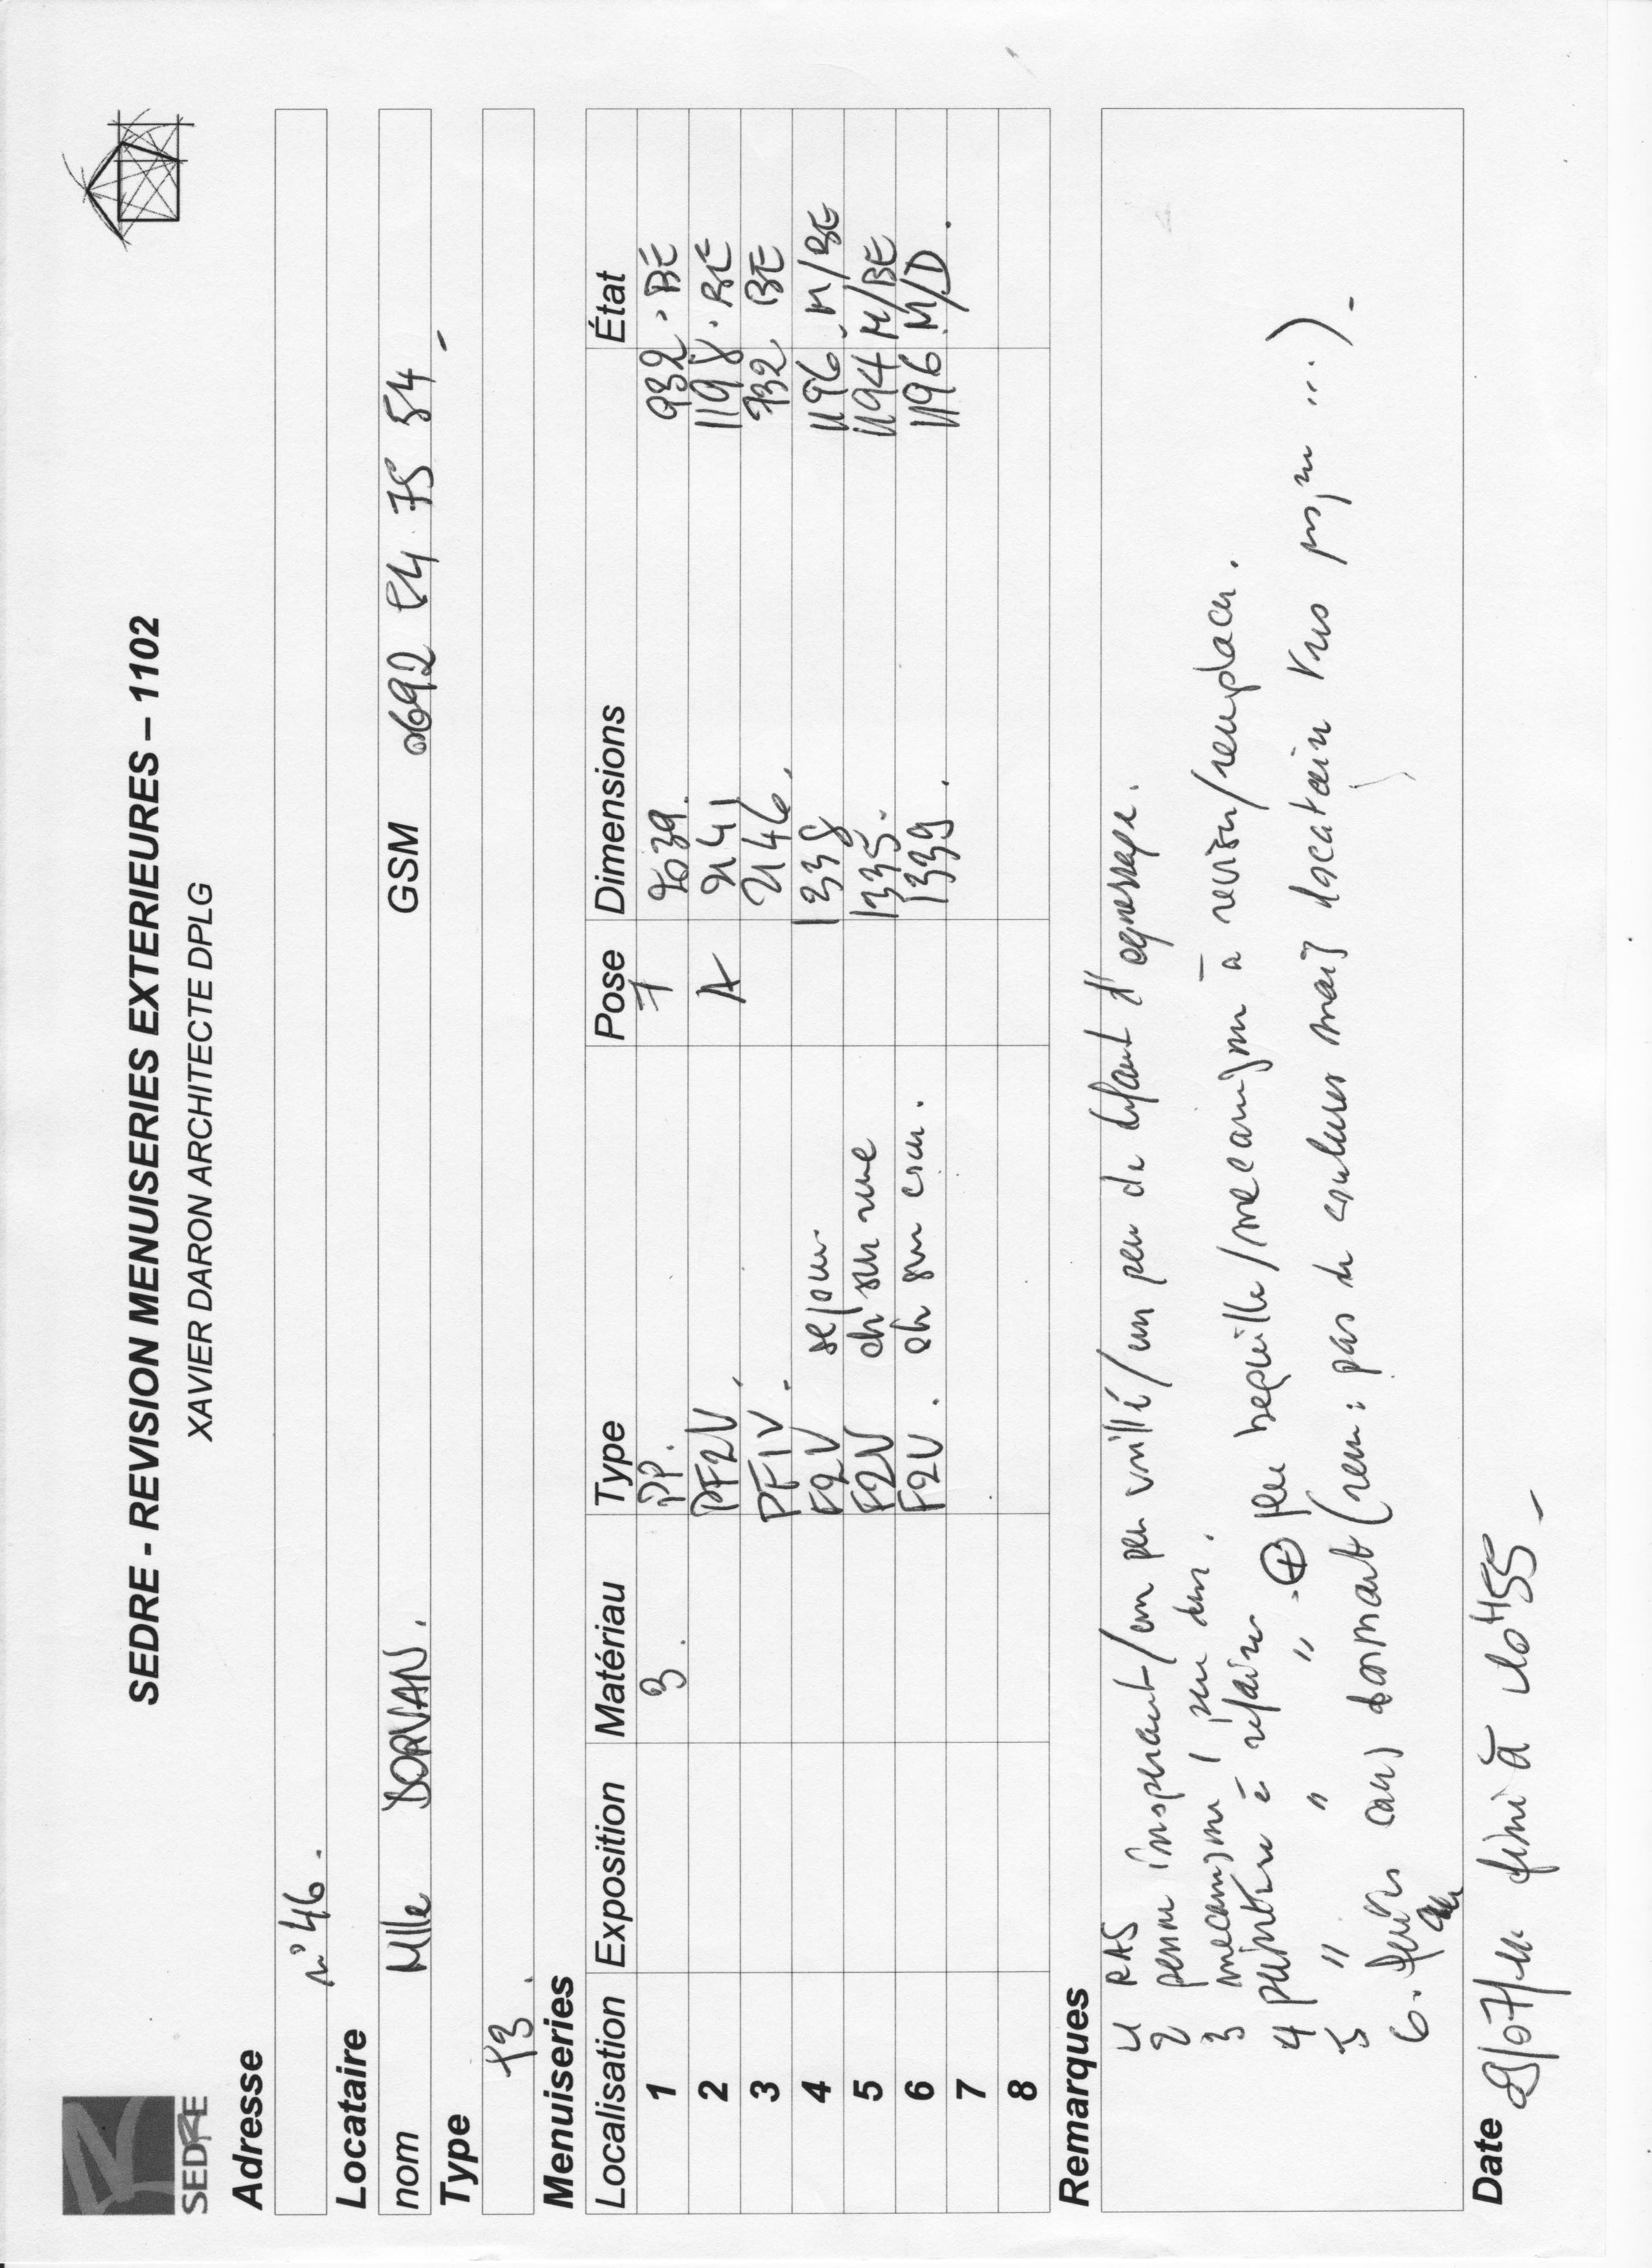 SEDRE
SEDRE - REVISION MENUISERIES EXTERIEURES – 1102
XAVIER DARON ARCHITECTE DPLG
Adresse
n° 46.
Locataire
nom Mlle DORVAN. GSM 0692 64 75 54
Type
T3.
Menuiseries
Localisation Exposition Matériau Type Pose Dimensions État
1 3. PP. 932. BE
2 PF2V A 2141 1198. BE
3 PF1V. 2146 932 BE
4 F2V sejour 1338 1196. M/BE
5 F2V ch sur rue 1335. 1194 M/BE
6 F2V. ch sur cour. 1339. 1196 M/D.
7
8
Remarques
1 RAS
2 penne inoperant/un peu un peu de défaut d'
3 mecanisme 1 peu dur.
4 peinture à refaire. ⊕ bequille/mecanisme à revision/remplacer.
5 " " "
6. dormant (rem: pas de coulures mais locataire ...)
Date fini à 10H55